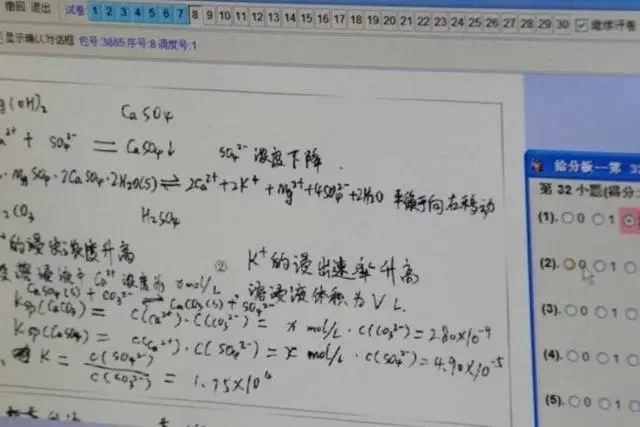 撤回 退出 试卷: 1 2 3 4 5 6 7 8 9 10 11 12 13 14 15 16 17 18 19 20 21 22 23 24 25 26 27 28 29 30
显示确认对话框 包号:3865 序号:8 调度号:1
(OH)₂ CaSO₄
²⁺ + SO₄²⁻ = CaSO₄↓ SO₄²⁻浓度下降.
·MgSO₄·2CaSO₄·2H₂O(s) ⇌ 2Ca²⁺+2K⁺+Mg²⁺+4SO₄²⁻+2H₂O 平衡于向右移动
₂CO₃ H₂SO₄
⁺的浸出浓度升高 ② K⁺的浸出速率升高
溶浸液中Ca²⁺浓度为x mol/L 溶浸液体积为V L.
CaSO₄(s) + CO₃²⁻ ⇌ CaCO₃(s) + SO₄²⁻
Ksp(CaCO₃) = c(Ca²⁺)·c(CO₃²⁻) = x mol/L·c(CO₃²⁻) = 2.80×10⁻⁹
Ksp(CaSO₄) = c(Ca²⁺)·c(SO₄²⁻) = x mol/L·c(SO₄²⁻) = 4.90×10⁻⁵
K = c(SO₄²⁻)/c(CO₃²⁻) = 1.75×10⁴
给分板--第 32
第 32 小题(得分:
(1). 0 1
(2). 0 1
(3). 0 1
(4). 0 1
(5). 0 1